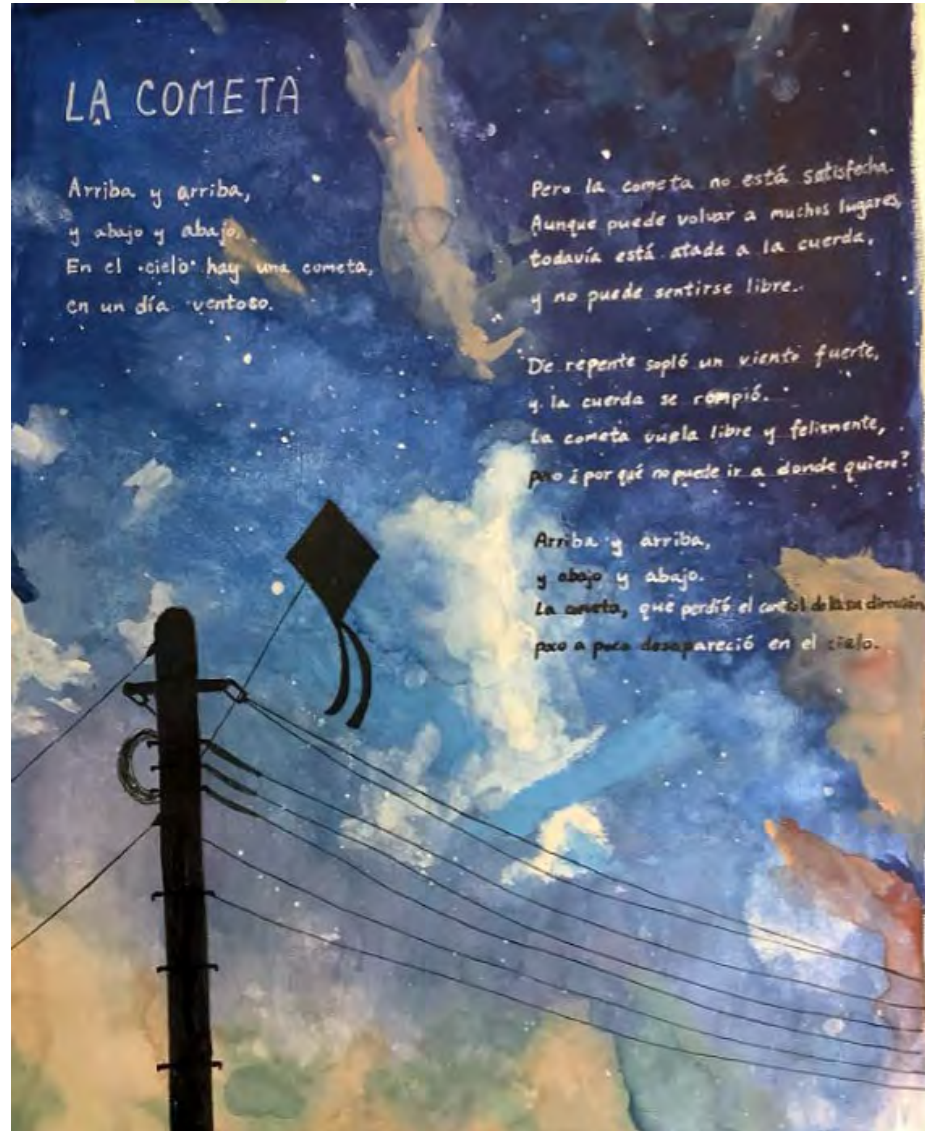 LA COMETA
Arriba y arriba,
y abajo y abajo,
En el cielo hay una cometa,
en un día ventoso.
Pero la cometa no está satisfecha.
Aunque puede volvar a muchos lugares,
todavía está atada a la cuerda,
y no puede sentirse libre.
De repente sopló un viento fuerte,
y la cuerda se rompió.
La cometa vuela libre y felizmente,
pero ¿por qué no puede ir a donde quiere?
Arriba y arriba,
y abajo y abajo.
La cometa, que perdió el control de la su dirección,
poco a poco desapareció en el cielo.